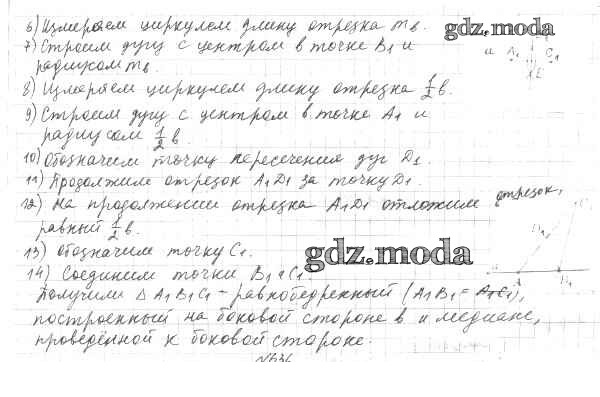 6) Измеряем циркулем длину отрезка mв.
gdz.moda
7) Строим дугу с центром в точке B₁ и
радиусом mв.
и A₁ C₁
E
8) Измеряем циркулем длину отрезка ½в.
9) Строим дугу с центром в точке A₁ и
радиусом ½в.
10) Обозначим точку пересечения дуг D₁.
11) Продолжим отрезок A₁D₁ за точку D₁.
12) На продолжении отрезка A₁D₁ отложим отрезок,
равный ½в.
13) Обозначим точку C₁.
gdz.moda
14) Соединим точки B₁ и C₁.
Получили Δ A₁B₁C₁ - равнобедренный (A₁B₁ = A₁C₁),
построенный на боковой стороне в и медиане,
проведённой к боковой стороне.
C₁
D₁
A₁ B₁